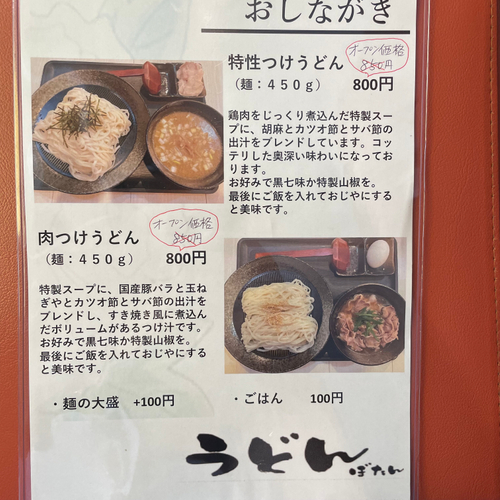 おしながき
特性つけうどん
オープン価格
850円
（麺：４５０ｇ）
800円
鶏肉をじっくり煮込んだ特製スー
プに、胡麻とカツオ節とサバ節の
出汁をブレンドしています。コッ
テリした奥深い味わいになってお
ります。
お好みで黒七味か特製山椒を。
最後にご飯を入れておじやにする
と美味です。
オープン価格
850円
肉つけうどん
（麺：４５０ｇ）
800円
特製スープに、国産豚バラと玉ね
ぎやとカツオ節とサバ節の出汁を
ブレンドし、すき焼き風に煮込ん
だボリュームがあるつけ汁です。
お好みで黒七味か特製山椒を。
最後にご飯を入れておじやにする
と美味です。
・麺の大盛 +100円
・ごはん 100円
うどん
ぼたん